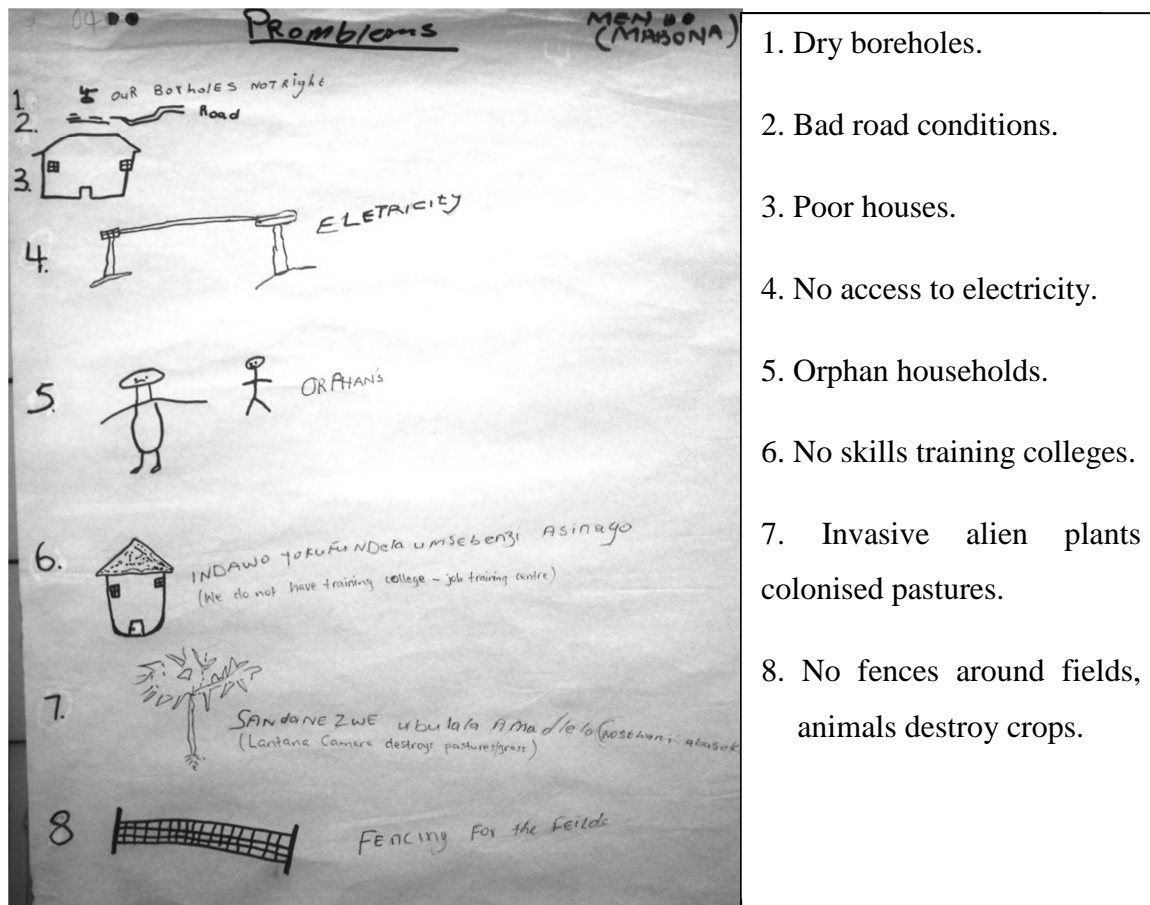 04
Promblems
MEN
(MABONA)
1. OUR BorholES NOT Right
2. Road
3.
4. ELETRICITY
5. ORPHANS
6. INDAWO YOKUFUNDela umSebenzi Asinayo
(We do not have training college – job training centre)
7. SANdaNEZWE ubulala AMadlelo
(Lantana Camara destroys pastures/grass)
8 FENCING FOR the FEilds
1. Dry boreholes.
2. Bad road conditions.
3. Poor houses.
4. No access to electricity.
5. Orphan households.
6. No skills training colleges.
7. Invasive alien plants
colonised pastures.
8. No fences around fields,
animals destroy crops.